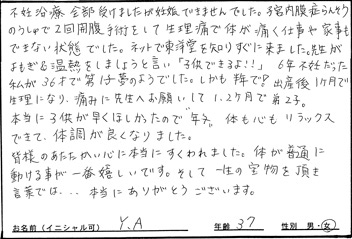 不妊治療全部受けましたが妊娠できませんでした。子宮内膜症
のうしゅで2回開腹手術をして生理痛で体が痛く仕事や家事も
できない状態でした。ネットで東洋堂を知りすぐに来ました。先生が
よもぎ&温熱をしましょうと言い「子供できるよ!!」6年不妊だった
私が36才で第1子夢のようでした。しかも 出産後1ヶ月で
生理になり、痛みに先生へお願いして1.2ヶ月で第2子。
本当に子供が早くほしかったので 体も心もリラックス
できて、体調が良くなりました。
皆様のあたたかい心に本当にすくわれました。体が普通に
動ける事が一番嬉しいです。そして一生の宝物を頂き
言葉では... 本当にありがとうございます。
お名前(イニシャル可) Y.A 年齢 37 性別 男・女